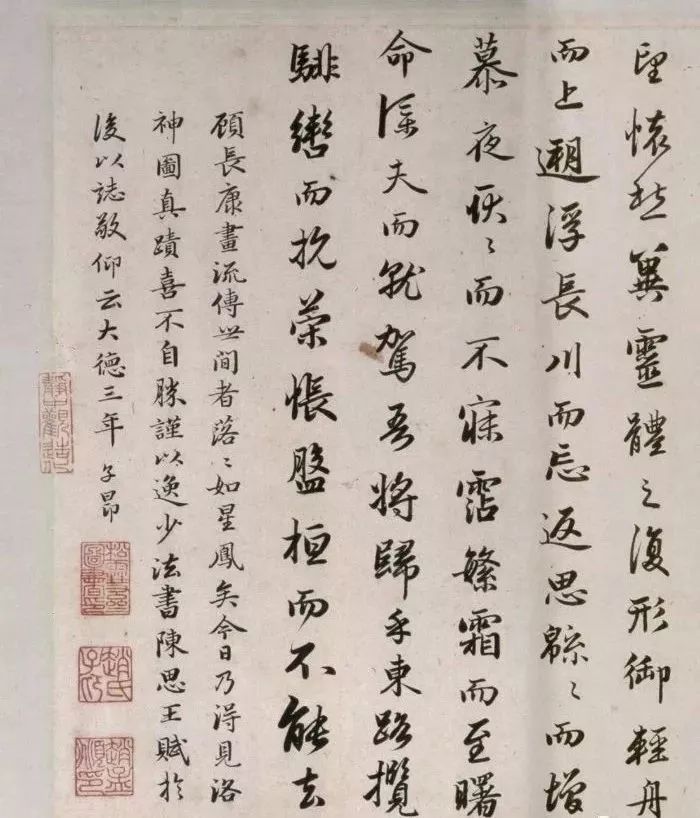 望懷愁冀靈體之復形御輕舟
而上遡浮長川而忘返思緜〻而增
慕夜耿〻而不寐霑繁霜而至曙
命僕夫而就駕吾將歸乎東路攬
騑轡而抗策悵盤桓而不能去
顧長康畫流傳世間者落〻如星鳳矣今日乃得見洛
神圖真蹟喜不自勝謹以逸少法書陳思王賦於
後以誌敬仰云大德三年 子昂
靜中觀造
松雪齋圖書印
趙氏子昂
趙孟頫印